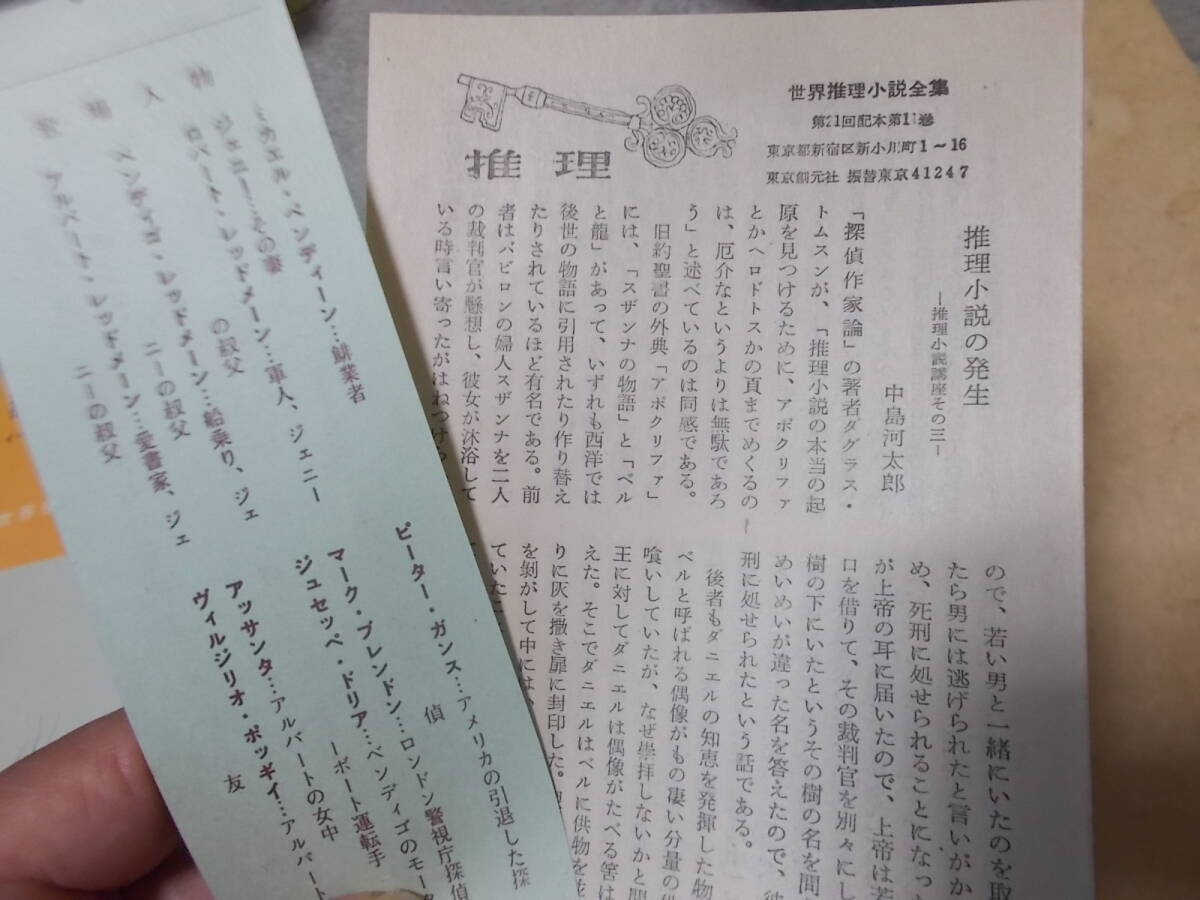 登場人物
ミカエル・ペンディーン…鯡業者
ジェニー…その妻
ロバート・レッドメーン…軍人、ジェニー
の叔父
ベンディゴ・レッドメーン…船乗り、ジェ
ニーの叔父
アルバート・レッドメーン…愛書家、ジェ
ニーの叔父
ピーター・ガンス…アメリカの引退した探
偵
マーク・ブレンドン…ロンドン警視庁探偵
ジュセッペ・ドリア…ベンディゴのモータ
ーボート運転手
アッサンタ…アルバートの女中
ヴィルジリオ・ポッギイ…アルバート
友
世界推理小説全集
第21回配本第1
巻
東京都新宿区新小川町1~16
東京創元社 振替東京41247
推理
推理小説の発生
―推理小説講座その三―
中島河太郎
「探偵作家論」の著者ダグラス・
トムスンが、「推理小説の本当の起
原を見つけるために、アポクリファ
とかヘロドトスかの頁までめくるの
は、厄介なというよりは無駄であろ
う」と述べているのは同感である。
旧約聖書の外典「アポクリファ」
には、「スザンナの物語」と「ベル
と龍」があって、いずれも西洋では
後世の物語に引用されたり作り替え
たりされているほど有名である。前
者はバビロンの婦人スザンナを二人
の裁判官が懸想し、彼女が沐浴して
いる時言い寄ったがはねつけ
ので、若い男と一緒にいたのを取
たら男には逃げられたと言いがか
め、死刑に処せられることになっ
が上帝の耳に届いたので、上帝は若
口を借りて、その裁判官を別々にし
樹の下にいたというその樹の名を間
めいめいが違った名を答えたので、彼
刑に処せられたという話である。
後者もダニエルの知恵を発揮した物
ベルと呼ばれる偶像がもの凄い分量の供
喰いしていたが、なぜ崇拝しないかと問
王に対してダニエルは偶像がたべる筈は
えた。そこでダニエルはベルに供物を
りに灰を撒き扉に封印した。
を剝がして中には
ていた